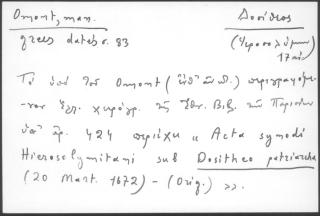 Omont, man. Δοσίθεος
grecs datés σ. 83 (Ἱεροσολύμων)
17 αἰ.
Τὸ ὑπὸ τοῦ Omont (ἔνθ' ἀνωτ.) περιγραφόμε-
νον Ἑλλ. χειρόγρ. τῆς Ἐθν. Βιβ. τῶν Παρισίων
ὑπ' ἀρ. 424 περιέχει « Acta synodi
Hierosolymitani sub Dositheo patriarcha
(20 Mart. 1672) - (Orig.) ».